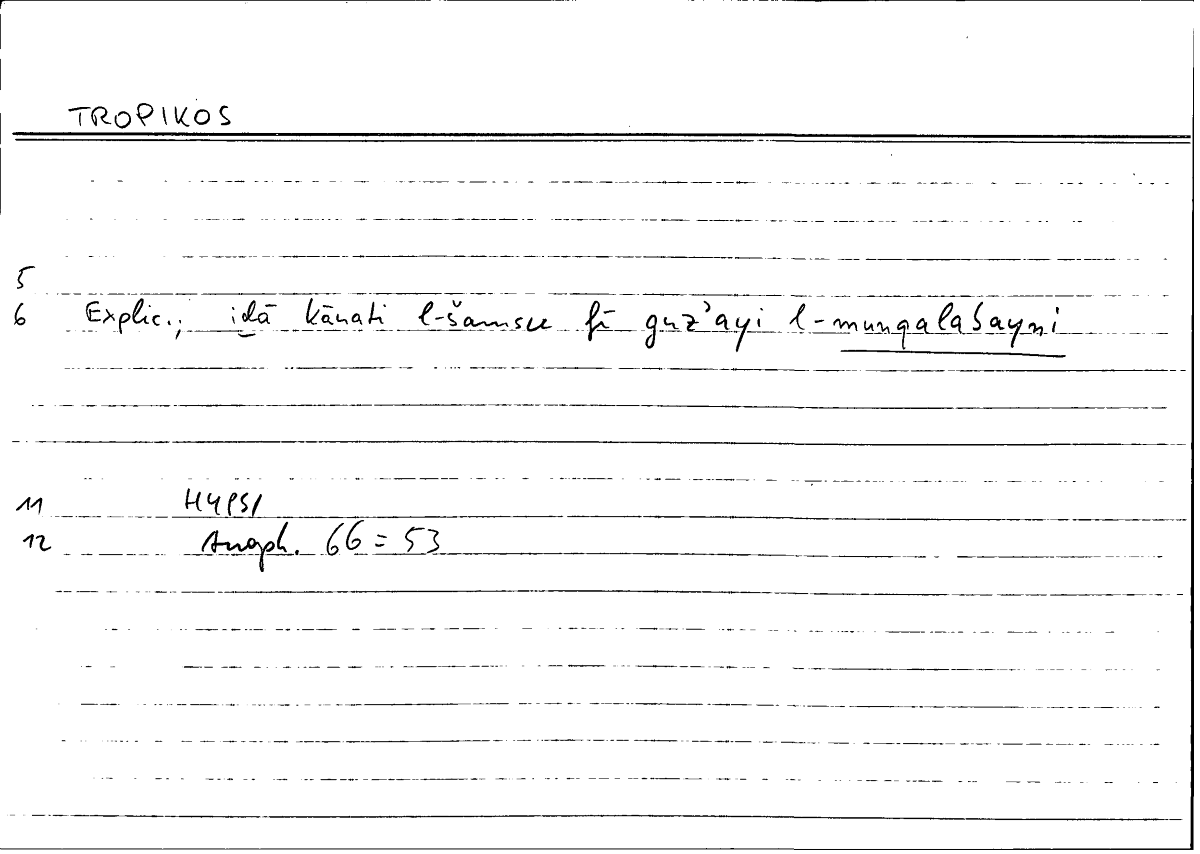 TROPIKOS
5
6 Explic.; iḏā kānati l-šamsu fī guz'ayi l-munqalabayni
11 HYPSI
12 Anaph. 66 = 53